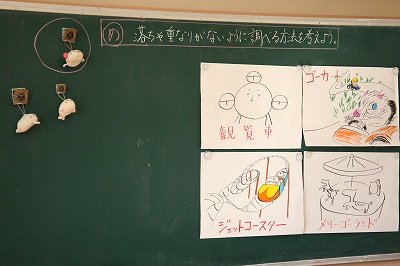 め 落ちや重なりがないように調べる方法を考えよう。
ゴーカート
観覧車
ジェットコースター
メリーゴーランド